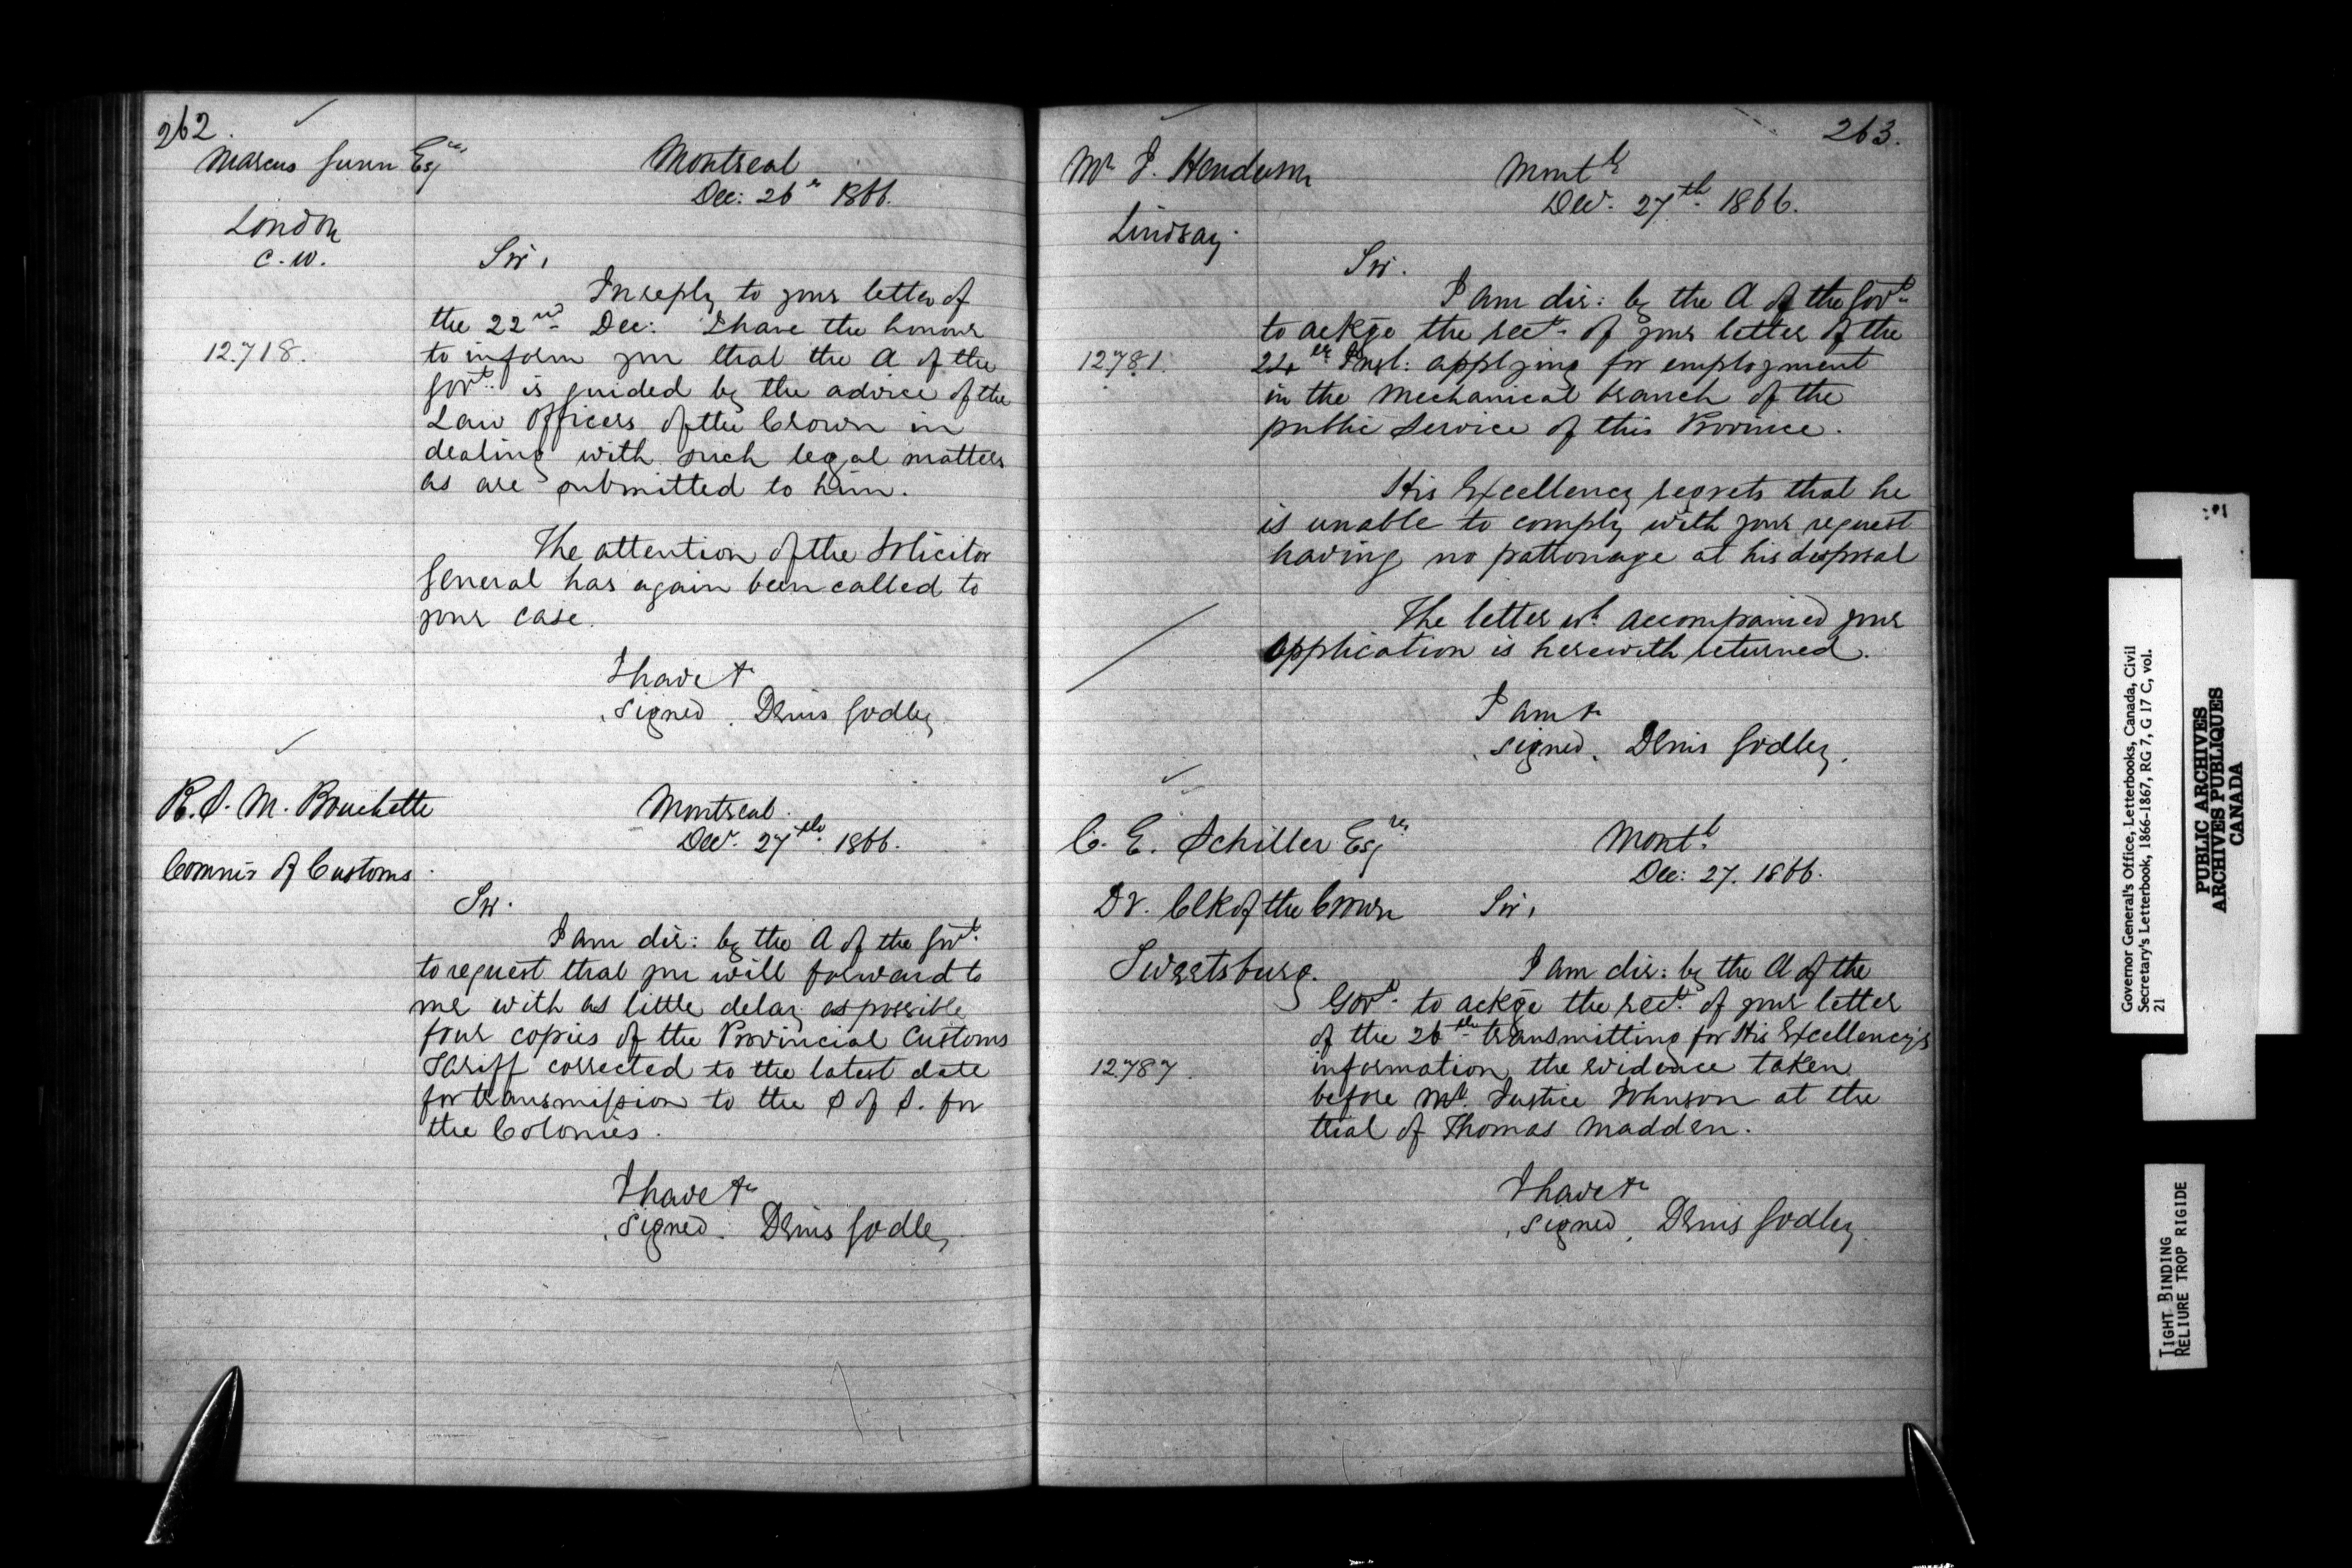 262.
Marcus Gunn Esqre
Montreal
Dec: 26th 1866.
London
C. W.
Sir,
In reply to your letter of
the 22nd Dec: I have the honour
12,718.
to inform you that the A of the
Govt. is guided by the advice of the
Law Officers of the Crown in
dealing with such legal matters
as are submitted to him.
The attention of the Solicitor
General has again been called to
your case.
I have &c
signed. Denis Godley
R. S. M. Bouchette
Montreal.
Decr. 27th 1866.
Commr of Customs.
Sir.
I am dir: by the A of the Govt.
to request that you will forward to
me with as little delay as possible
four copies of the Provincial Customs
Tariff corrected to the latest date
for transmission to the S of S. for
the Colonies.
I have &c
signed. Denis Godley
263.
Mr J. Henderson
Montl
Decr. 27th 1866.
Lindsay.
Sir.
I am dir: by the A of the Govt.
to ackge the rect. of your letter of the
12,781.
22nd Inst: applying for employment
in the Mechanical branch of the
public Service of this Province.
His Excellency regrets that he
is unable to comply with your request
having no patronage at his disposal
The letter wh. accompanied your
application is herewith returned.
I am &c
signed. Denis Godley.
C. E. Schiller Esqre
Montl
Dec: 27. 1866.
Dy. Clk of the Crown
Sir,
Sweetsburg.
I am dir: by the A of the
Govt. to ackge the rect. of your letter
of the 26th transmitting for His Excellency's
12,787.
information, the evidence taken
before Mr. Justice Johnson at the
trial of Thomas Madden.
I have &c
signed. Denis Godley.
Governor General's Office, Letterbooks, Canada, Civil
Secretary's Letterbook, 1866-1867, RG 7, G 17 C, vol.
21
PUBLIC ARCHIVES
ARCHIVES PUBLIQUES
CANADA
TIGHT BINDING
RELIURE TROP RIGIDE